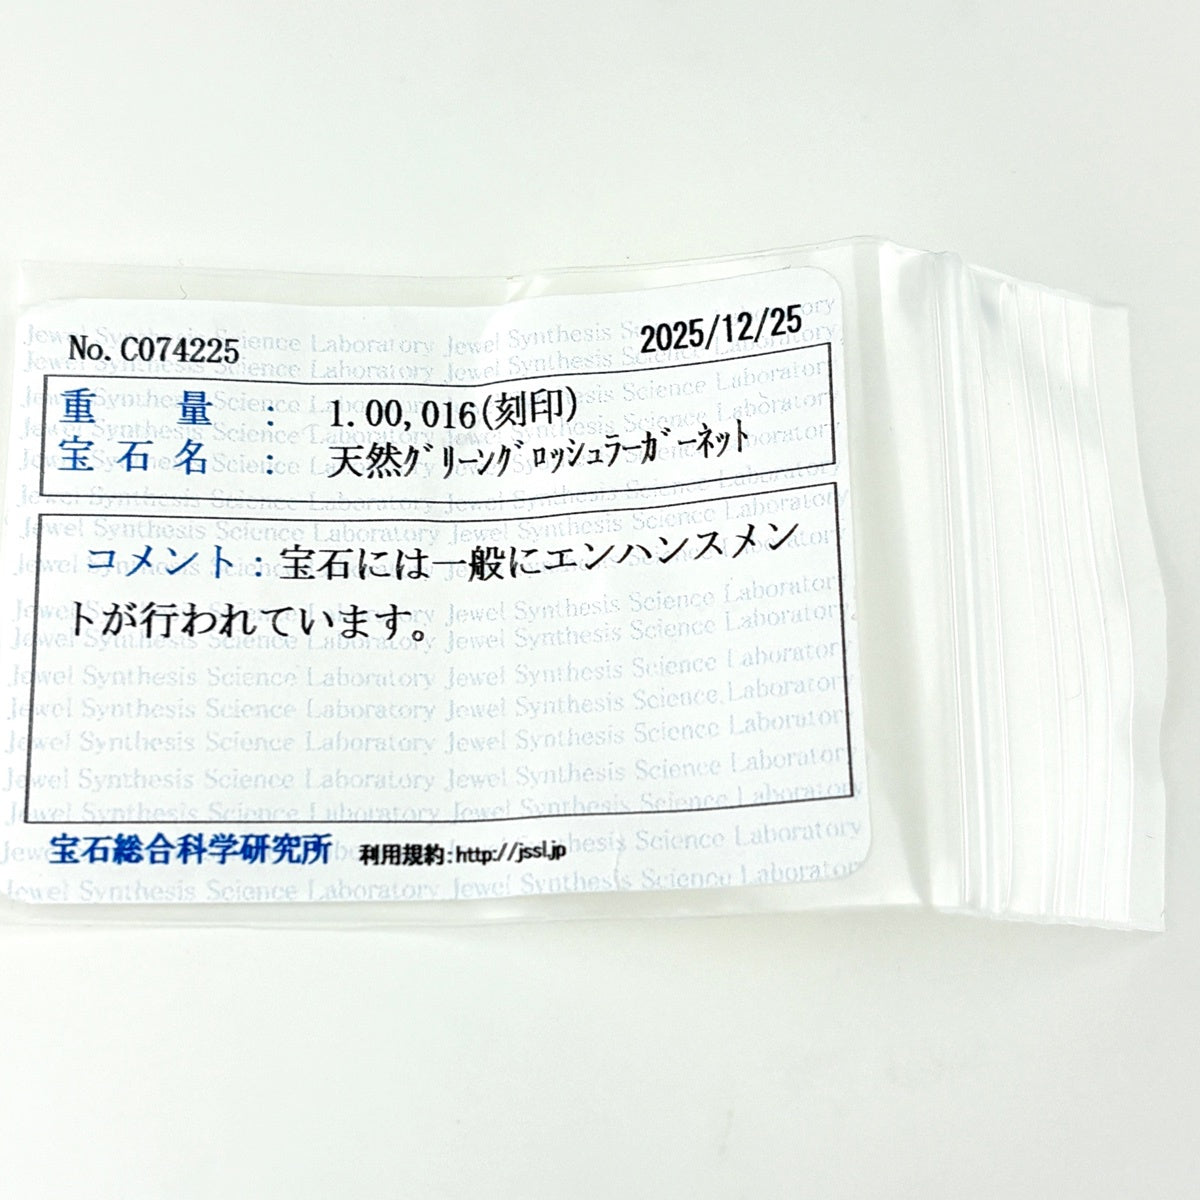 No. C074225
2025/12/25
重量： 1.00,016(刻印)
宝石名： 天然ｸﾞﾘｰﾝｸﾞﾛｯｼｭﾗｰｶﾞｰﾈｯﾄ
コメント：宝石には一般にエンハンスメン
トが行われています。
宝石総合科学研究所 利用規約:http://jssl.jp
Jewel Synthesis Science Laboratory Jewel Synthesis Science Laboratory